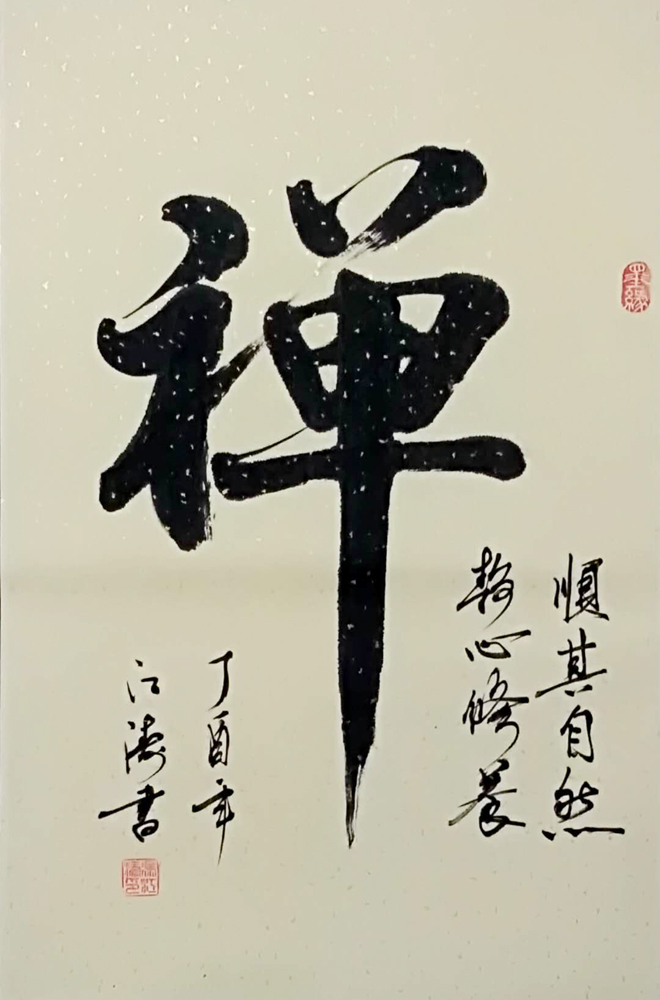 禅
順其自然
静心修養
丁酉年
江濤書
墨緣